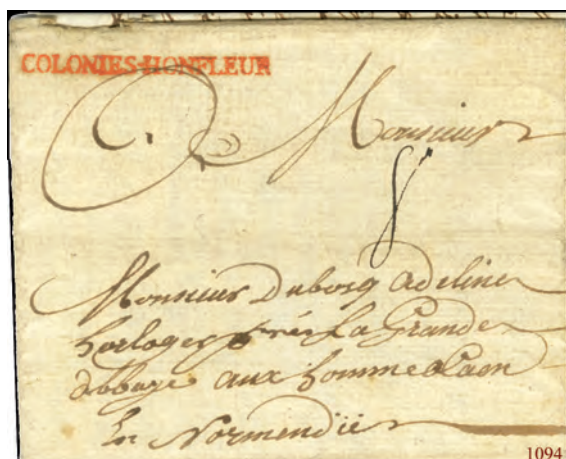 COLONIES-HONFLEUR
A Monsieur
8
Monsieur Dubosq Adeline
horloger prés La Grande
abbaye aux homme a Caen
En Normendië
1094